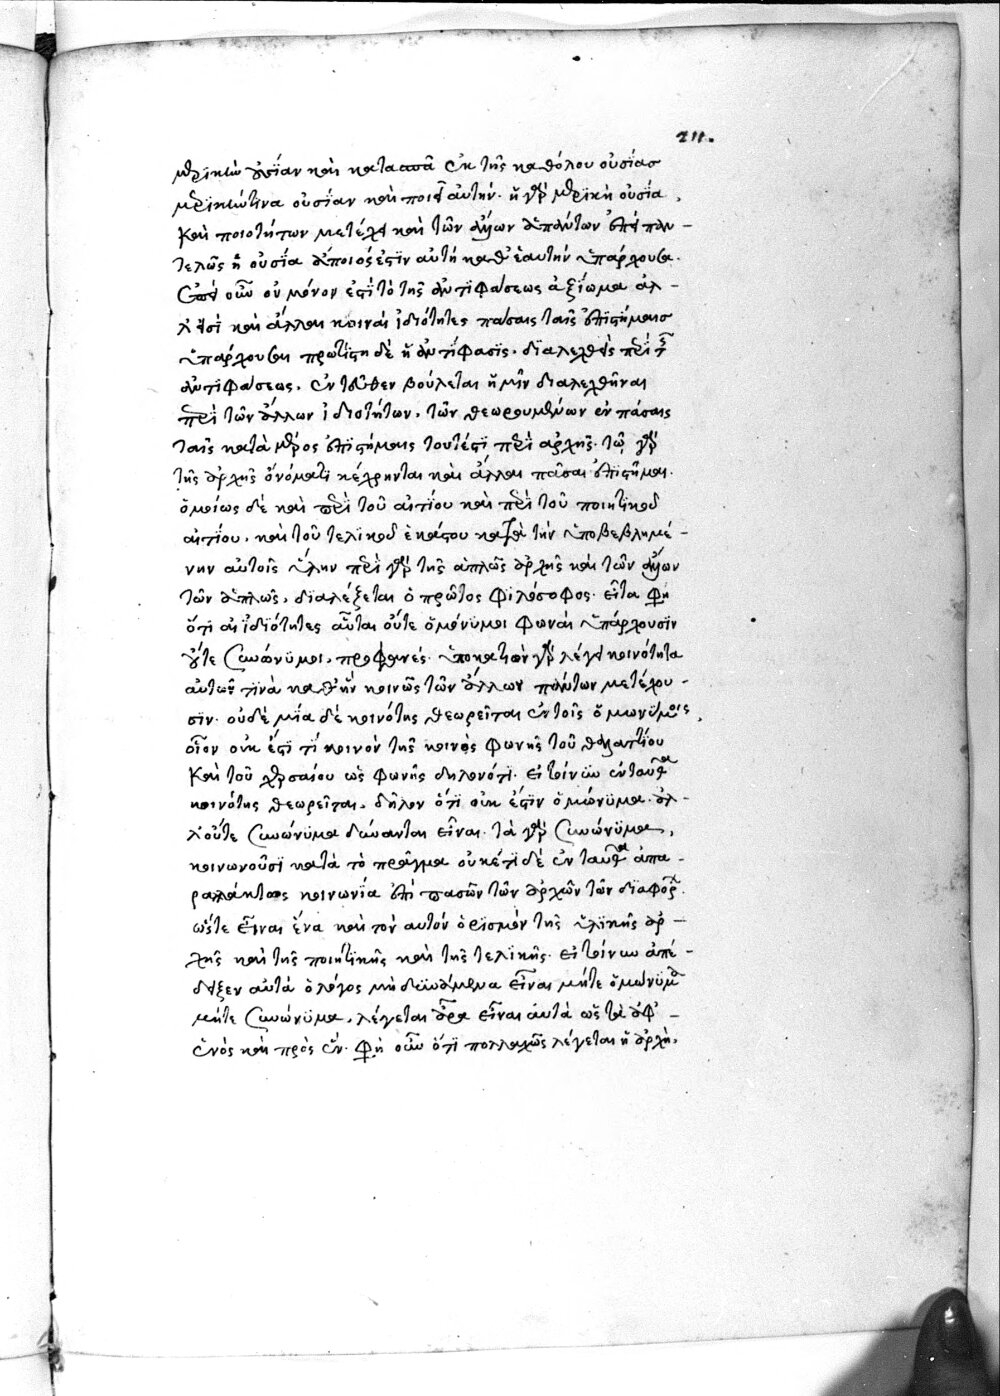 211.
μερικὴν οὐσίαν καὶ κατασπᾶ ἐκ τῆς καθόλου οὐσίας
μερικήν τινα οὐσίαν καὶ ποιεῖ αὐτήν. ἡ γὰρ μερικὴ οὐσία,
καὶ ποιοτήτων μετέχει καὶ τῶν ἄλλων ἁπάντων ἐπεὶ παν-
τελῶς ἡ οὐσία ἄποιός ἐστιν αὐτὴ καθ' ἑαυτὴν ὑπάρχουσα.
ἐπεὶ οὖν οὐ μόνον ἐστὶ τὸ τῆς ἀντιφάσεως ἀξίωμα ἀλ-
λ' εἰσὶ καὶ ἄλλαι κοιναὶ ἰδιότητες πάσαις ταῖς ἐπιστήμαις
ὑπάρχουσαι πρωτίστη δὲ ἡ ἀντίφασις. διαλεχθεὶς περὶ τῆς
ἀντιφάσεως, ἐντεῦθεν βούλεται ἡμῖν διαλεχθῆναι
περὶ τῶν ἄλλων ἰδιοτήτων, τῶν θεωρουμένων ἐν πάσαις
ταῖς κατὰ μέρος ἐπιστήμαις τουτέστι περὶ ἀρχῆς. τῷ γὰρ
τῆς ἀρχῆς ὀνόματι κέχρηνται καὶ ἄλλαι πᾶσαι ἐπιστῆμαι.
ὁμοίως δὲ καὶ περὶ τοῦ αἰτίου καὶ περὶ τοῦ ποιητικοῦ
αἰτίου, καὶ τοῦ τελικοῦ ἑκάστου κατὰ τὴν ὑποβεβλημέ-
νην αὐτοῖς ὕλην περὶ γὰρ τῆς ἁπλῶς ἀρχῆς καὶ τῶν ἄλλων
τῶν ἁπλῶς, διαλέξεται ὁ πρῶτος φιλόσοφος. εἶτα φησὶ
ὅτι αἱ ἰδιότητες αὗται οὔτε ὁμώνυμοι φωναὶ ὑπάρχουσιν
οὔτε συνώνυμοι, προφανές. ὑποκατιὼν γὰρ λέγει κοινότητα
αὐτῶν τινὰ καθ' ἣν κοινῶς τῶν ἄλλων πάντων μετέχου-
σιν. οὐδὲ μία δὲ κοινότης θεωρεῖται ἐν τοῖς ὁμωνύμοις,
οἷον οὐκ ἔστι τί κοινὸν τῆς κυνὸς φωνῆς τοῦ θαλαττίου
καὶ τοῦ χερσαίου ὡς φωνῆς δηλονότι. εἰ τοίνυν ἐνταῦθα
κοινότης θεωρεῖται, δῆλον ὅτι οὐκ ἔστιν ὁμώνυμα. ἀλ-
λ' οὔτε συνώνυμα δύνανται εἶναι. τὰ γὰρ συνώνυμα,
κοινωνοῦσι κατὰ τὸ πρᾶγμα οὐκέτι δὲ ἐνταῦθα ἀπα-
ράλλακτος κοινωνία ἐπὶ πασῶν τῶν ἀρχῶν τῶν διαφόρων.
ὥστε εἶναι ἕνα καὶ τὸν αὐτὸν ὁρισμὸν τῆς ὑλικῆς ἀρ-
χῆς καὶ τῆς ποιητικῆς καὶ τῆς τελικῆς. εἰ τοίνυν ἀπέ-
δειξεν αὐτὰ ὁ λόγος μὴ δυνάμενα εἶναι μήτε ὁμώνυμα
μήτε συνώνυμα, λέγεται ἄρα εἶναι αὐτὰ ὡς τὰ ἀφ'
ἑνὸς καὶ πρὸς ἕν. φησὶ οὖν ὅτι πολλαχῶς λέγεται ἡ ἀρχή.